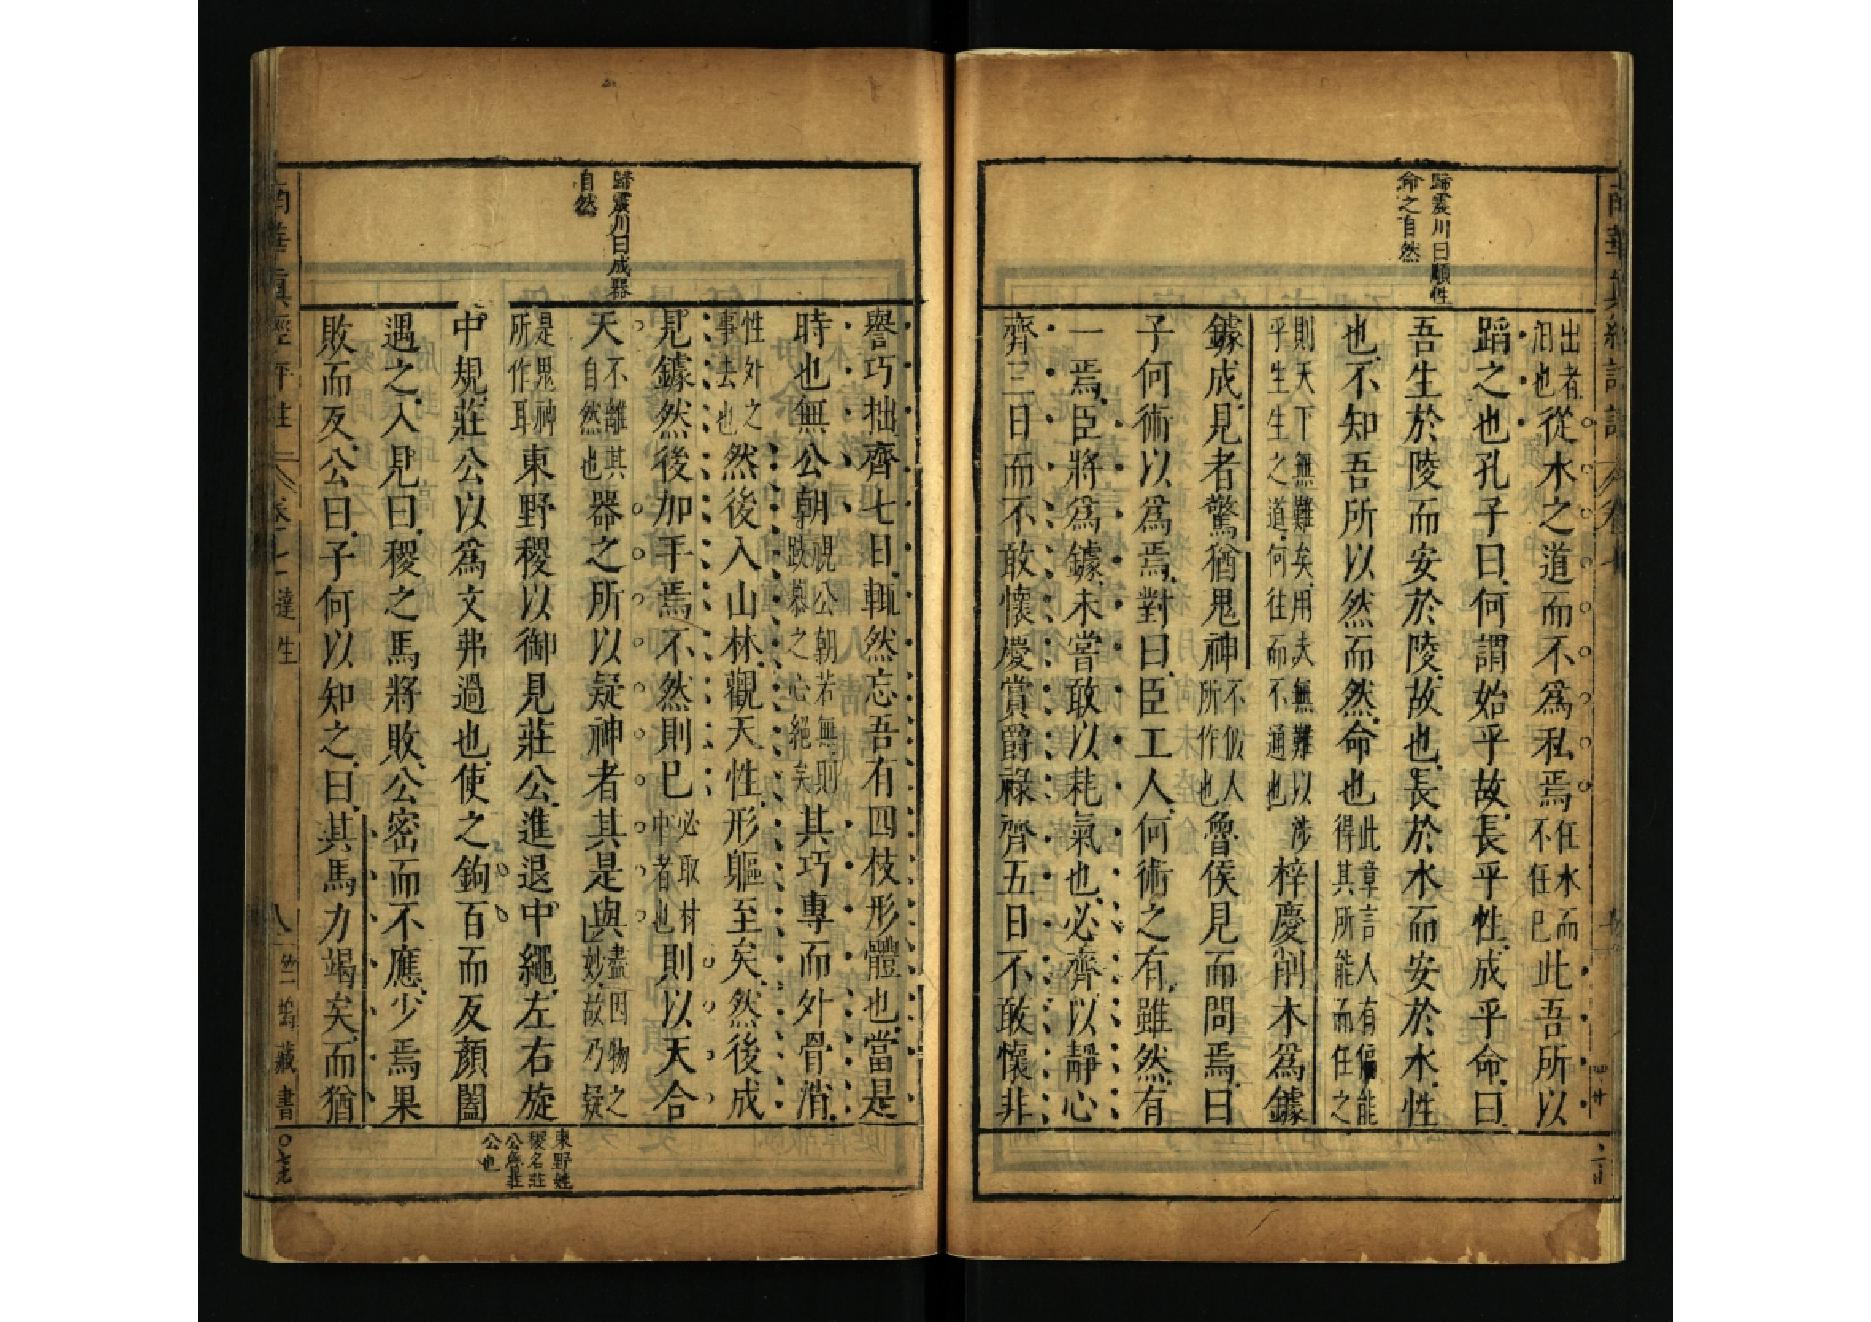 歸震川曰順性
命之自然
出者從水之道而不爲私焉任水而此吾所以
汩也不任已
蹈之也孔子曰何謂始乎故長乎性成乎命曰
吾生於陵而安於陵故也長於水而安於水性
也不知吾所以然而然命也此章言人有偏能
得其所能而任之
則天下無難矣用夫無難以涉
乎生生之道何往而不通也梓慶削木爲鐻
鐻成見者驚猶鬼神不似人
所作也魯侯見而問焉曰
子何術以爲焉對曰臣工人何術之有雖然有
一焉臣將爲鐻未嘗敢以耗氣也必齊以靜心
齊三日而不敢懷慶賞爵祿齊五日不敢懷非
歸震川曰成器
自然
譽巧拙齊七日輒然忘吾有四枝形體也當是
時也無公朝視公朝若無則
跂慕之心絕矣其巧專而外骨消
性外之
事去也然後入山林觀天性形軀至矣然後成
見鐻然後加手焉不然則已必取材
中者也則以天合
天不離其
自然也器之所以疑神者其是與盡因物之
妙故乃疑
是鬼神
所作耳東野稷以御見莊公進退中繩左右旋
中規莊公以爲文弗過也使之鉤百而反顏闔
遇之入見曰稷之馬將敗公密而不應少焉果
敗而反公曰子何以知之曰其馬力竭矣而猶
東野姓
稷名莊
公魯莊
公也
南華眞經評註 卷之七 達生 八 竺塢藏書